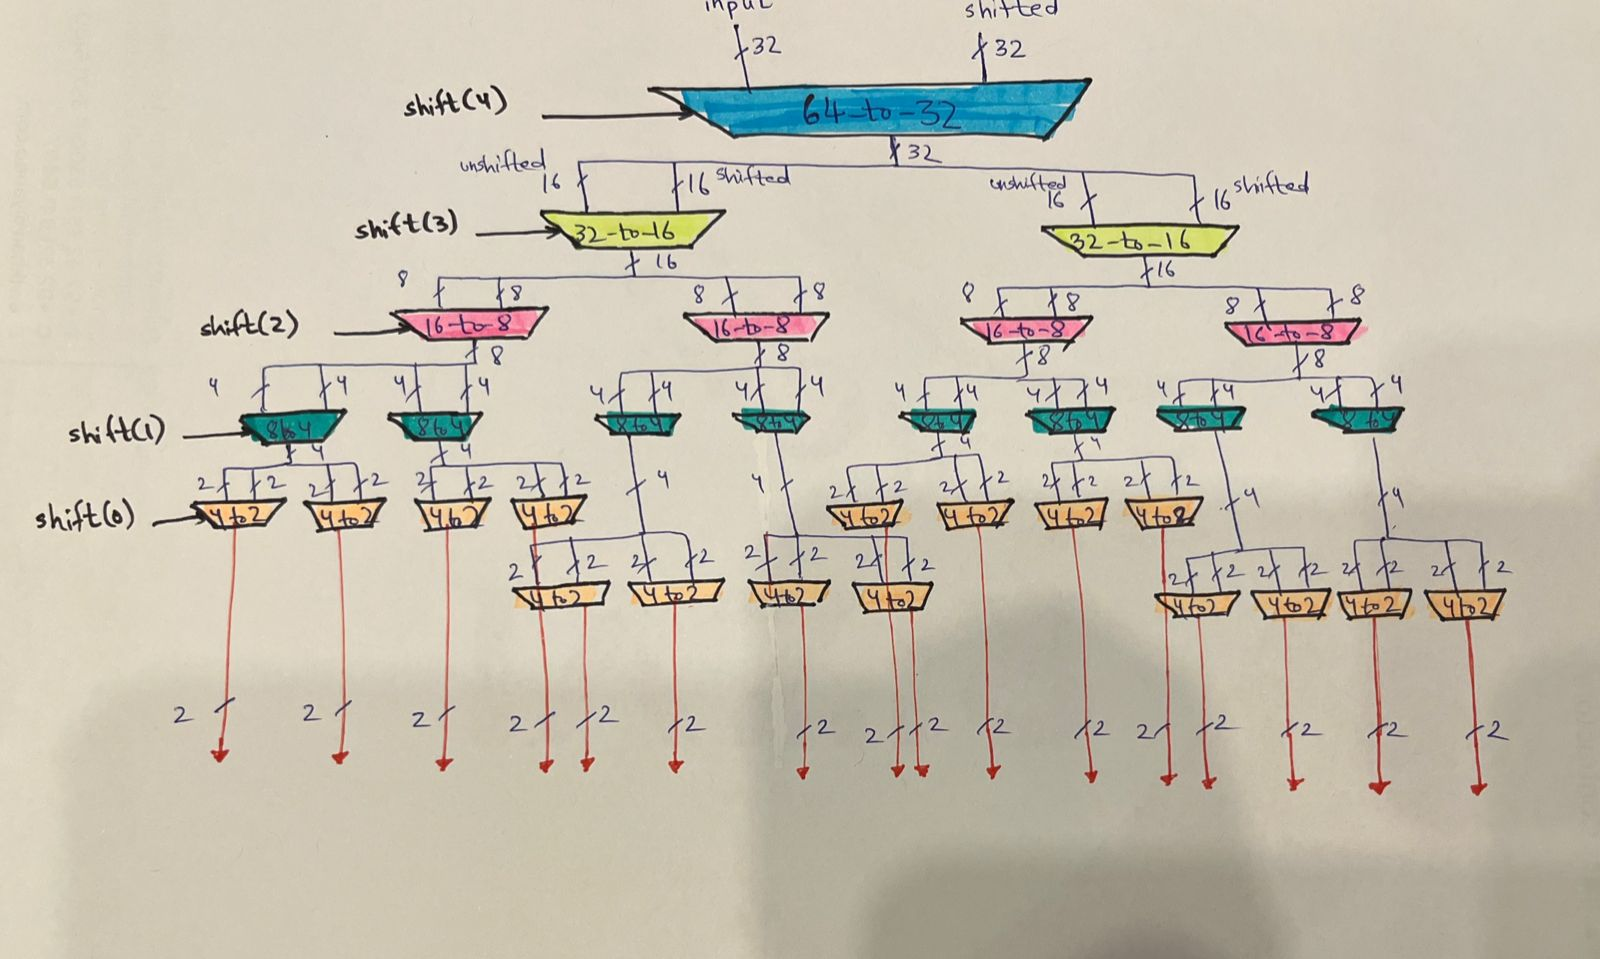 input shifted
32 32
shift(4) 64-to-32
32
unshifted 16 16 shifted unshifted 16 16 shifted
shift(3) 32-to-16 32-to-16
16 16
8 8 8 8 8 8 8 8
shift(2) 16-to-8 16-to-8 16-to-8 16-to-8
8 8 8 8
4 4 4 4 4 4 4 4 4 4 4 4 4 4 4 4
shift(1) 8to4 8to4 8to4 8to4 8to4 8to4 8to4 8to4
4 4 4 4
2 2 2 2 2 2 2 2 4 4 2 2 2 2 2 2 2 2 4 4
shift(0) 4to2 4to2 4to2 4to2 4to2 4to2 4to2 4to2
2 2 2 2 2 2 2 2 2 2 2 2 2 2 2 2
4to2 4to2 4to2 4to2 4to2 4to2 4to2 4to2
2 2 2 2 2 2 2 2 2 2 2 2 2 2 2 2